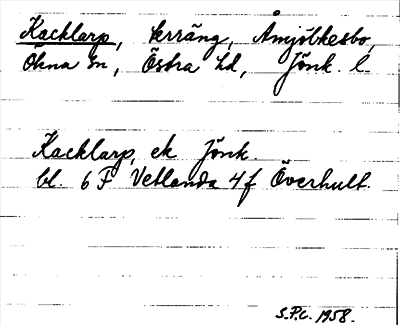 Kacklarp, terräng, Åmjölkesbo,
Ökna sn, Östra hd, Jönk. l
Kacklarp, ek Jönk.
bl. 6 F Vetlanda 4f Överhult.
S.P.C. 1958.